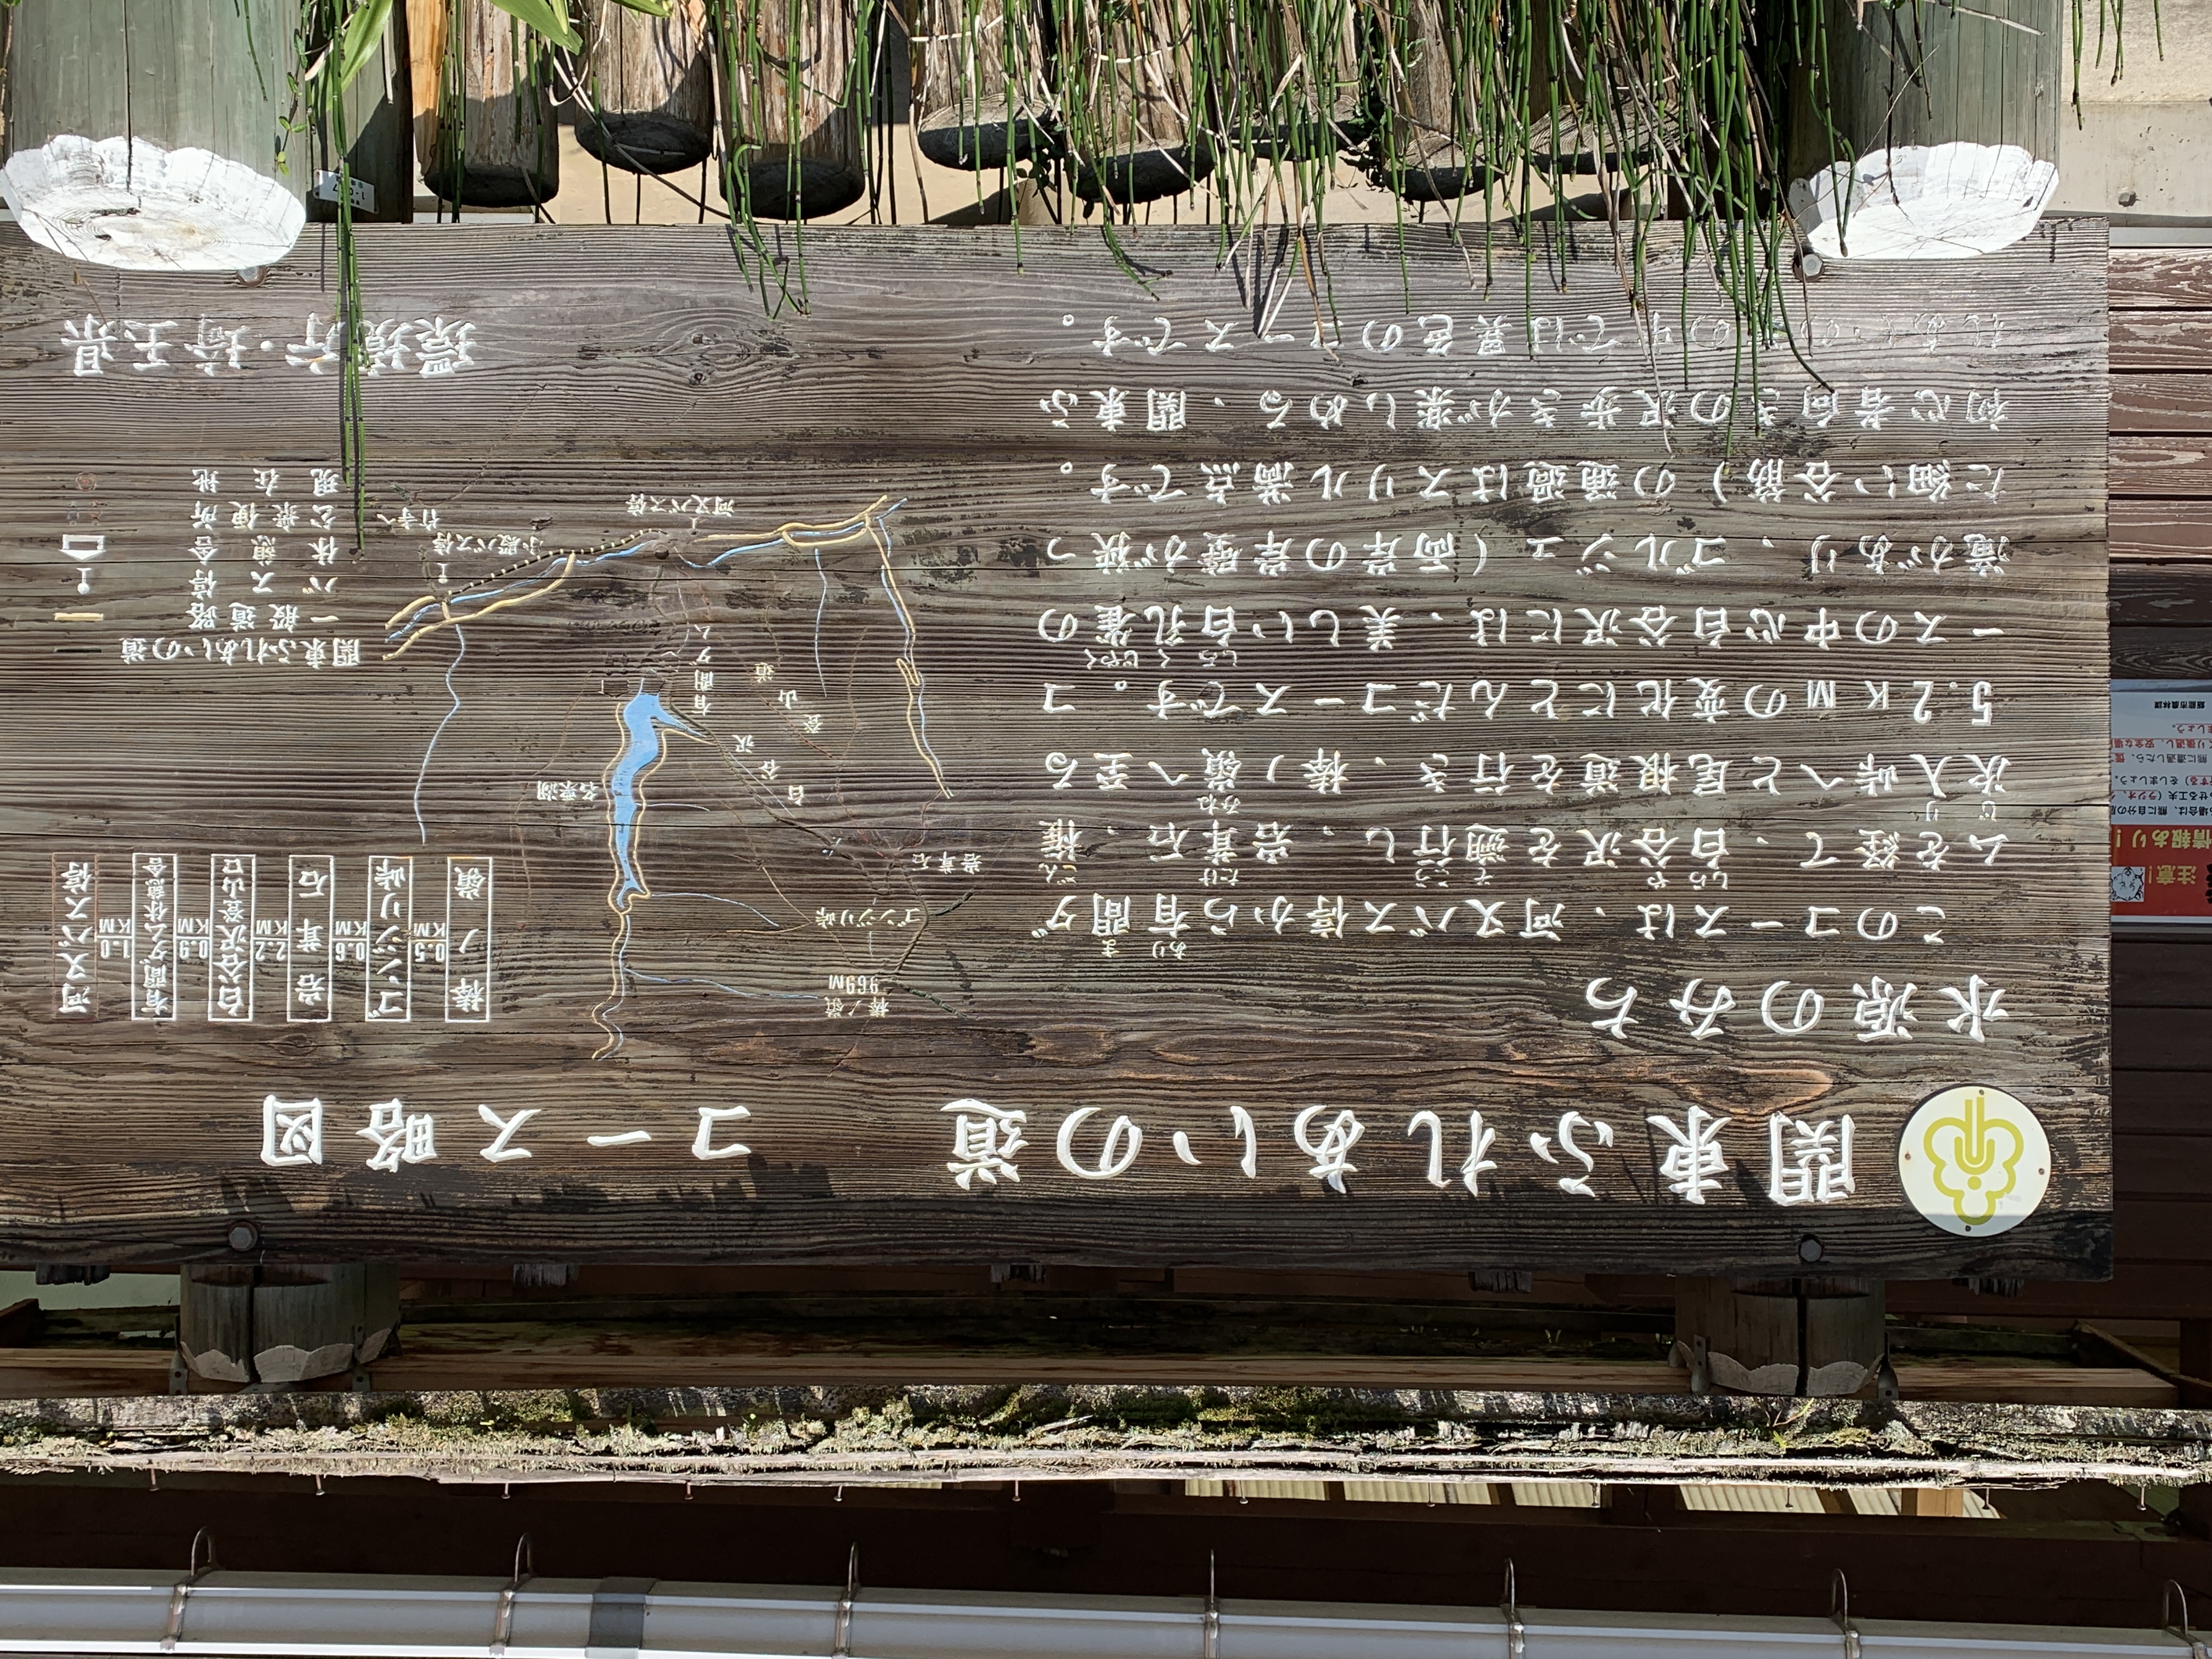 関東ふれあいの道
コース略図
水源のみち
このコースは、河又バス停から有間ダ
あり ま
ムを経て、白谷沢を遡行し、岩茸石、権
しら や そ こう たけ ごん
次入峠へと尾根道を行き、棒ノ嶺へ至る
じ り みね
5.2KMの変化にとんだコースです。コ
ースの中心白谷沢には、美しい白孔雀の
しら く じゃく
滝があり、ゴルジュ(両岸の岸壁が狭っ
た細い谷筋)の通過はスリル満点です。
初心者向きの沢歩きが楽しめる、関東ふ
れあいの道の中では異色のコースです。
棒ノ嶺
969M
ゴンジリ峠
岩茸石
白谷沢
登山道
名栗湖
有間ダム
河又バス停
小殿バス停
竹寺へ
棒ノ嶺
0.5KM
ゴンジリ峠
0.6KM
岩茸石
2.2KM
白谷沢登山口
0.9KM
有間ダム休憩舎
1.0KM
河又バス停
関東ふれあいの道
一般道路
バス停
休憩舎
公衆便所
現在地
環境庁・埼玉県
注意!
情報あり!
飯能市農林課